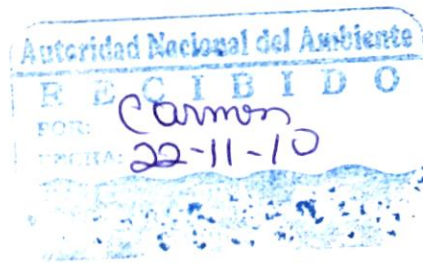 Autoridad Nacional del Ambiente
RECIBIDO
POR: Carmon
FECHA: 22-11-10